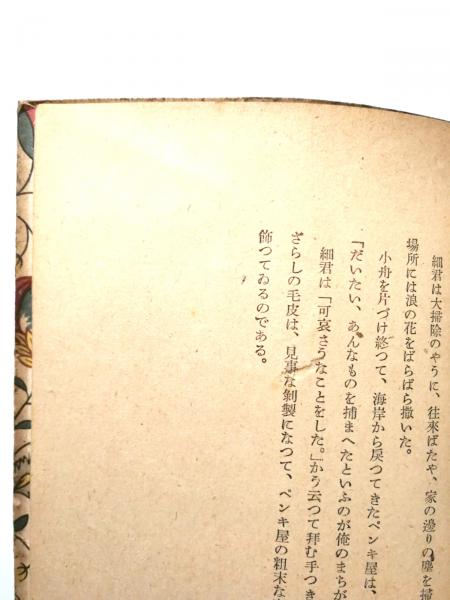 細君は大掃除のやうに、往來ばたや、家の邊りの塵を掃
場所には浪の花をばらばら撒いた。
小舟を片づけ終つて、海岸から戾つてきたペンキ屋は、
「だいたい、あんなものを捕まへたといふのが俺のまちが
細君は「可哀さうなことをした。」かう云つて拜む手つき
ざらしの毛皮は、見事な剝製になつて、ペンキ屋の粗末な
飾つてゐるのである。